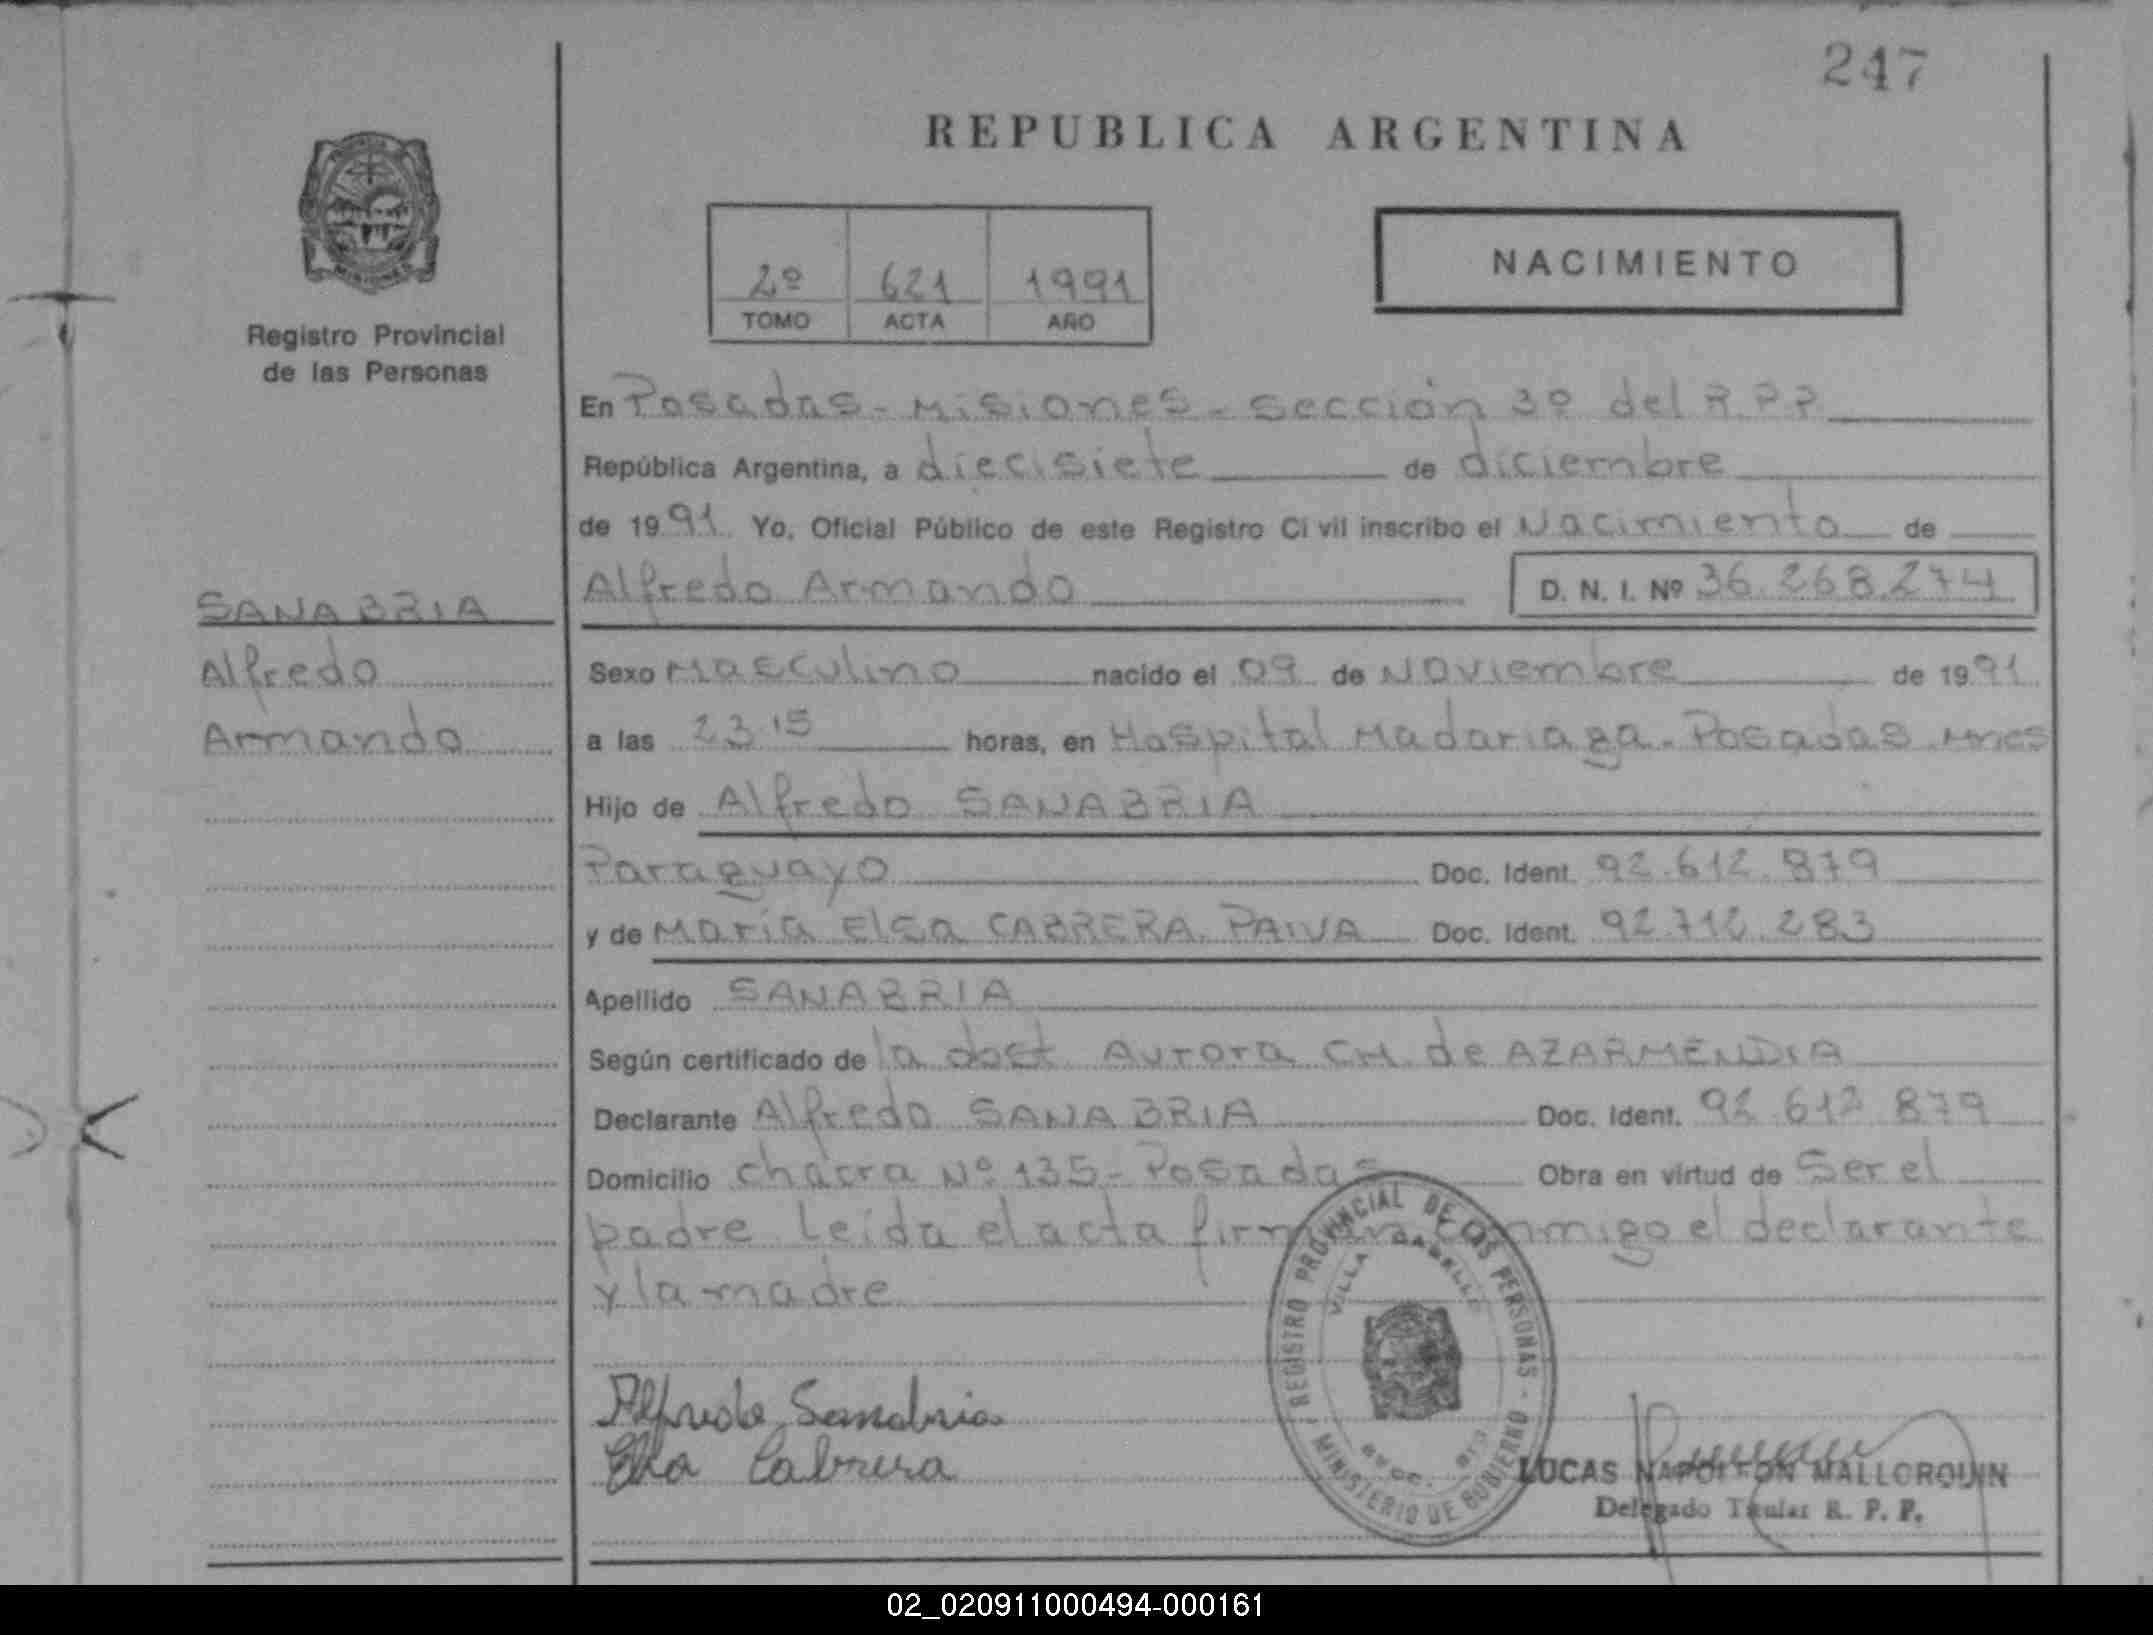 247
REPUBLICA ARGENTINA
2º 621 1991
TOMO ACTA AÑO
NACIMIENTO
Registro Provincial
de las Personas
En Posadas - Misiones - Sección 3º del R.P.P
República Argentina, a diecisiete de diciembre
de 1991. Yo, Oficial Público de este Registro Civil inscribo el Nacimiento de
Alfredo Armando D. N. I. Nº 36.268.274
SANABRIA
Alfredo
Armando
Sexo Masculino nacido el 09 de Noviembre de 1991
a las 23.15 horas, en Hospital Madariaga - Posadas Mnes
Hijo de Alfredo SANABRIA
Paraguayo Doc. Ident. 92.612.879
y de María Elsa CABRERA PAIVA Doc. Ident. 92.712.283
Apellido SANABRIA
Según certificado de la obst. Aurora CH. de AZARMENDIA
Declarante Alfredo SANABRIA Doc. Ident. 92.612.879
Domicilio chacra Nº 135 - Posadas Obra en virtud de Ser el
padre Leída el acta firman conmigo el declarante
y la madre
Alfredo Sanabria
Elsa Cabrera
REGISTRO PROVINCIAL DE LAS PERSONAS - MINISTERIO DE GOBIERNO
VILLA CABELLO
LUCAS NAPOLEON MALLORQUIN
Delegado Titular R. P. P.
02_020911000494-000161